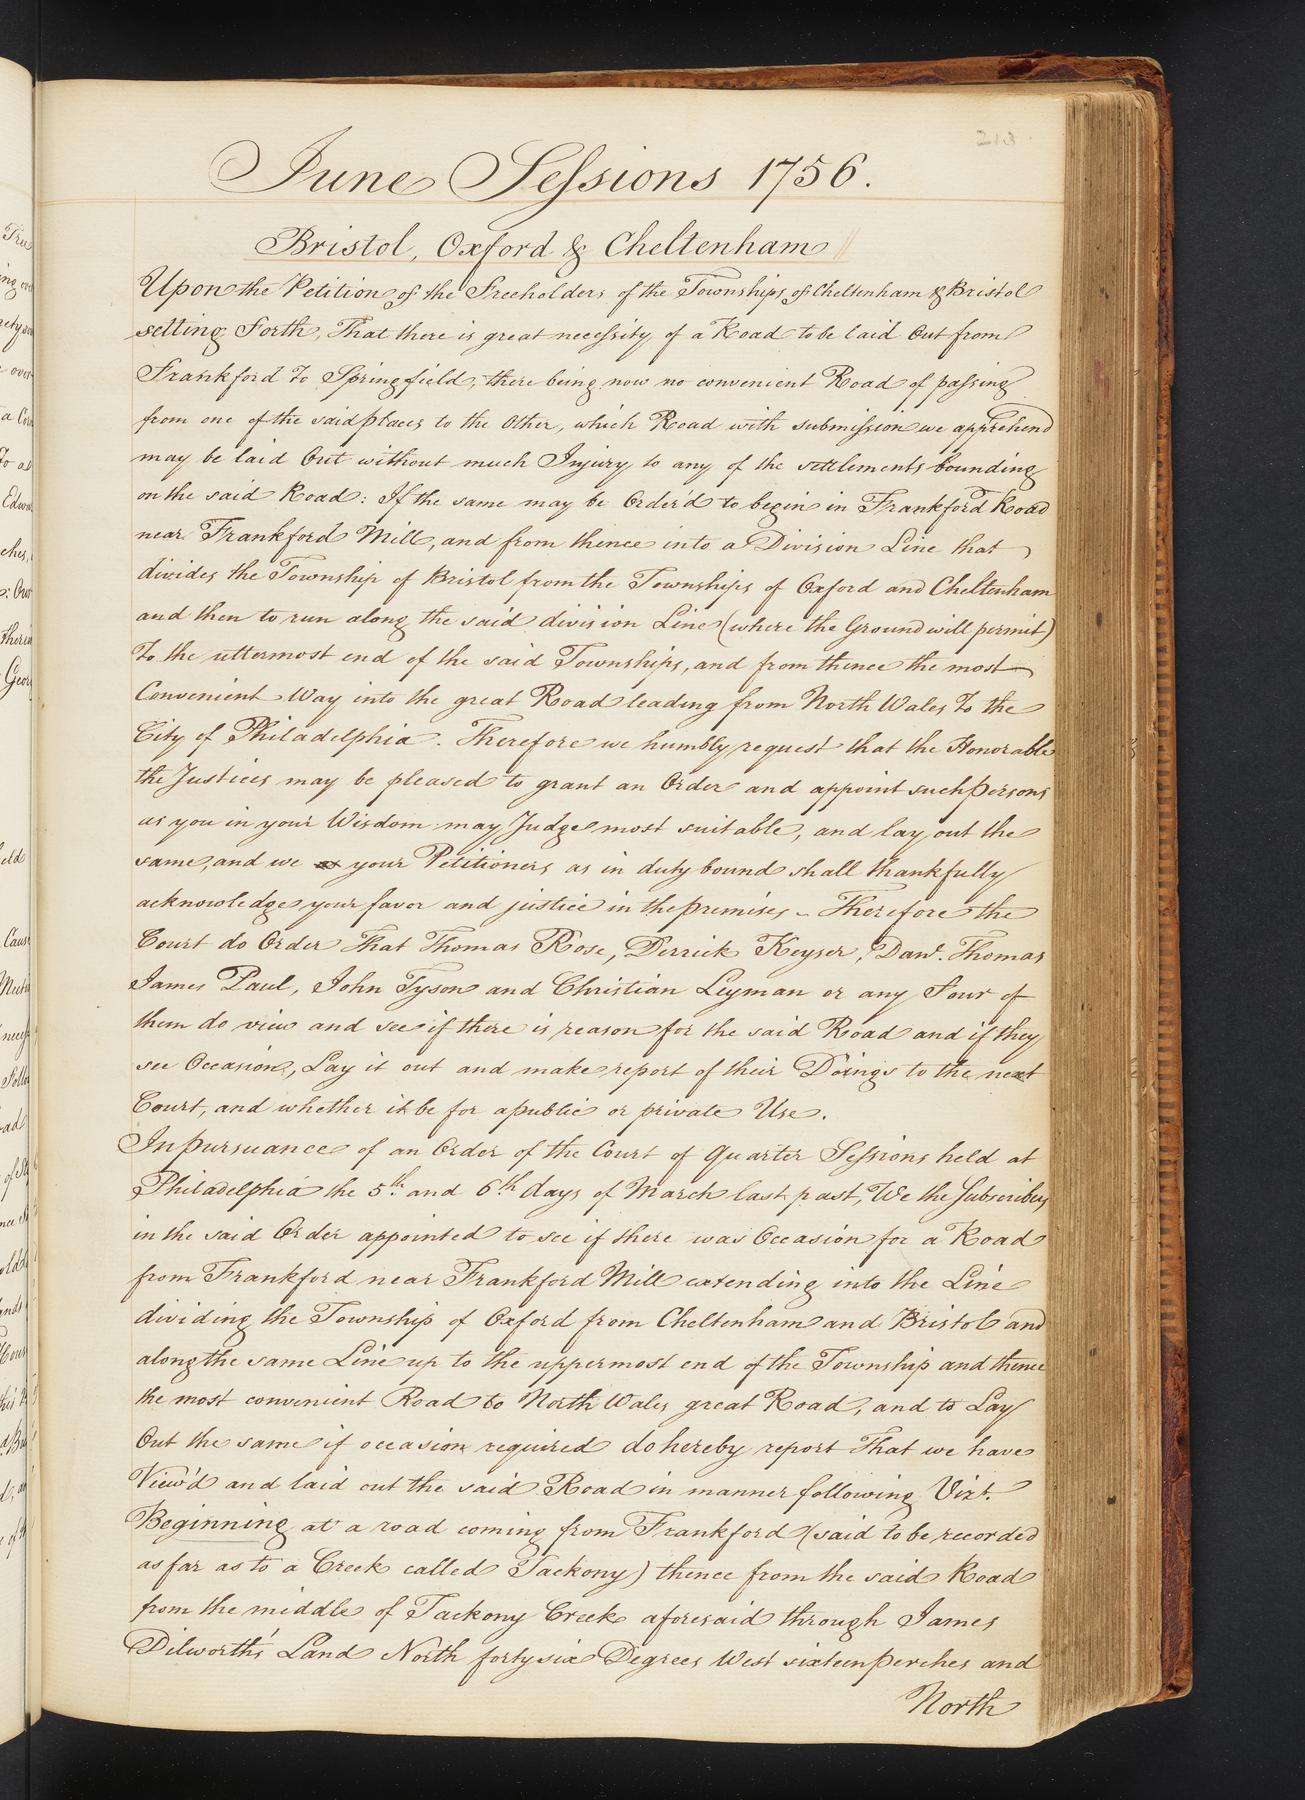 213
June Sessions 1756.
Bristol, Oxford & Cheltenham
Upon the Petition of the Freeholders of the Townships of Cheltenham & Bristol
setting Forth, That there is great necessity of a Road to be laid Out from
Frankford To Springfield, there being now no convenient Road of passing
from one of the said places to the Other, which Road with submission we apprehend
may be laid Out without much Injury to any of the settlements bounding
on the said Road: If the same may be Order'd to begin in Frankford Road
near Frankford Mill, and from thence into a Division Line that
divides the Township of Bristol from the Townships of Oxford and Cheltenham
and then to run along the said division Line (where the Ground will permit)
To the uttermost end of the said Townships, and from thence the most
Convenient Way into the great Road leading from North Wales To the
City of Philadelphia. Therefore we humbly request that the Honorable
the Justices may be pleased to grant an Order and appoint such Persons
as you in your Wisdom may Judge most suitable, and lay out the
same, and we as your Petitioners as in duty bound shall thankfully
acknowledge your favor and justice in the premises - Therefore the
Court do Order That Thomas Rose, Derrick Keyser, Danl. Thomas
James Paul, John Tyson and Christian Leyman or any Four of
them do view and see if there is reason for the said Road and if they
see Occasion, Lay it out and make report of their Doings to the next
Court, and whether it be for a public or private Use.
In pursuance of an Order of the Court of Quarter Sessions held at
Philadelphia the 5th. and 6th days of March last past, We the Subscribers
in the said Order appointed to see if there was Occasion for a Road
from Frankford near Frankford Mill extending into the Line
dividing the Township of Oxford from Cheltenham and Bristol and
along the same Line up to the uppermost end of the Township and thence
the most convenient Road to North Wales great Road, and to Lay
Out the same if occasion required do hereby report That we have
View'd and laid out the said Road in manner following Vizt.
Beginning at a road coming from Frankford (said to be recorded
as far as to a Creek called Tackony) thence from the said Road
from the middle of Tackony Creek aforesaid through James
Dilworth's Land North forty six Degrees West sixteen perches and
North